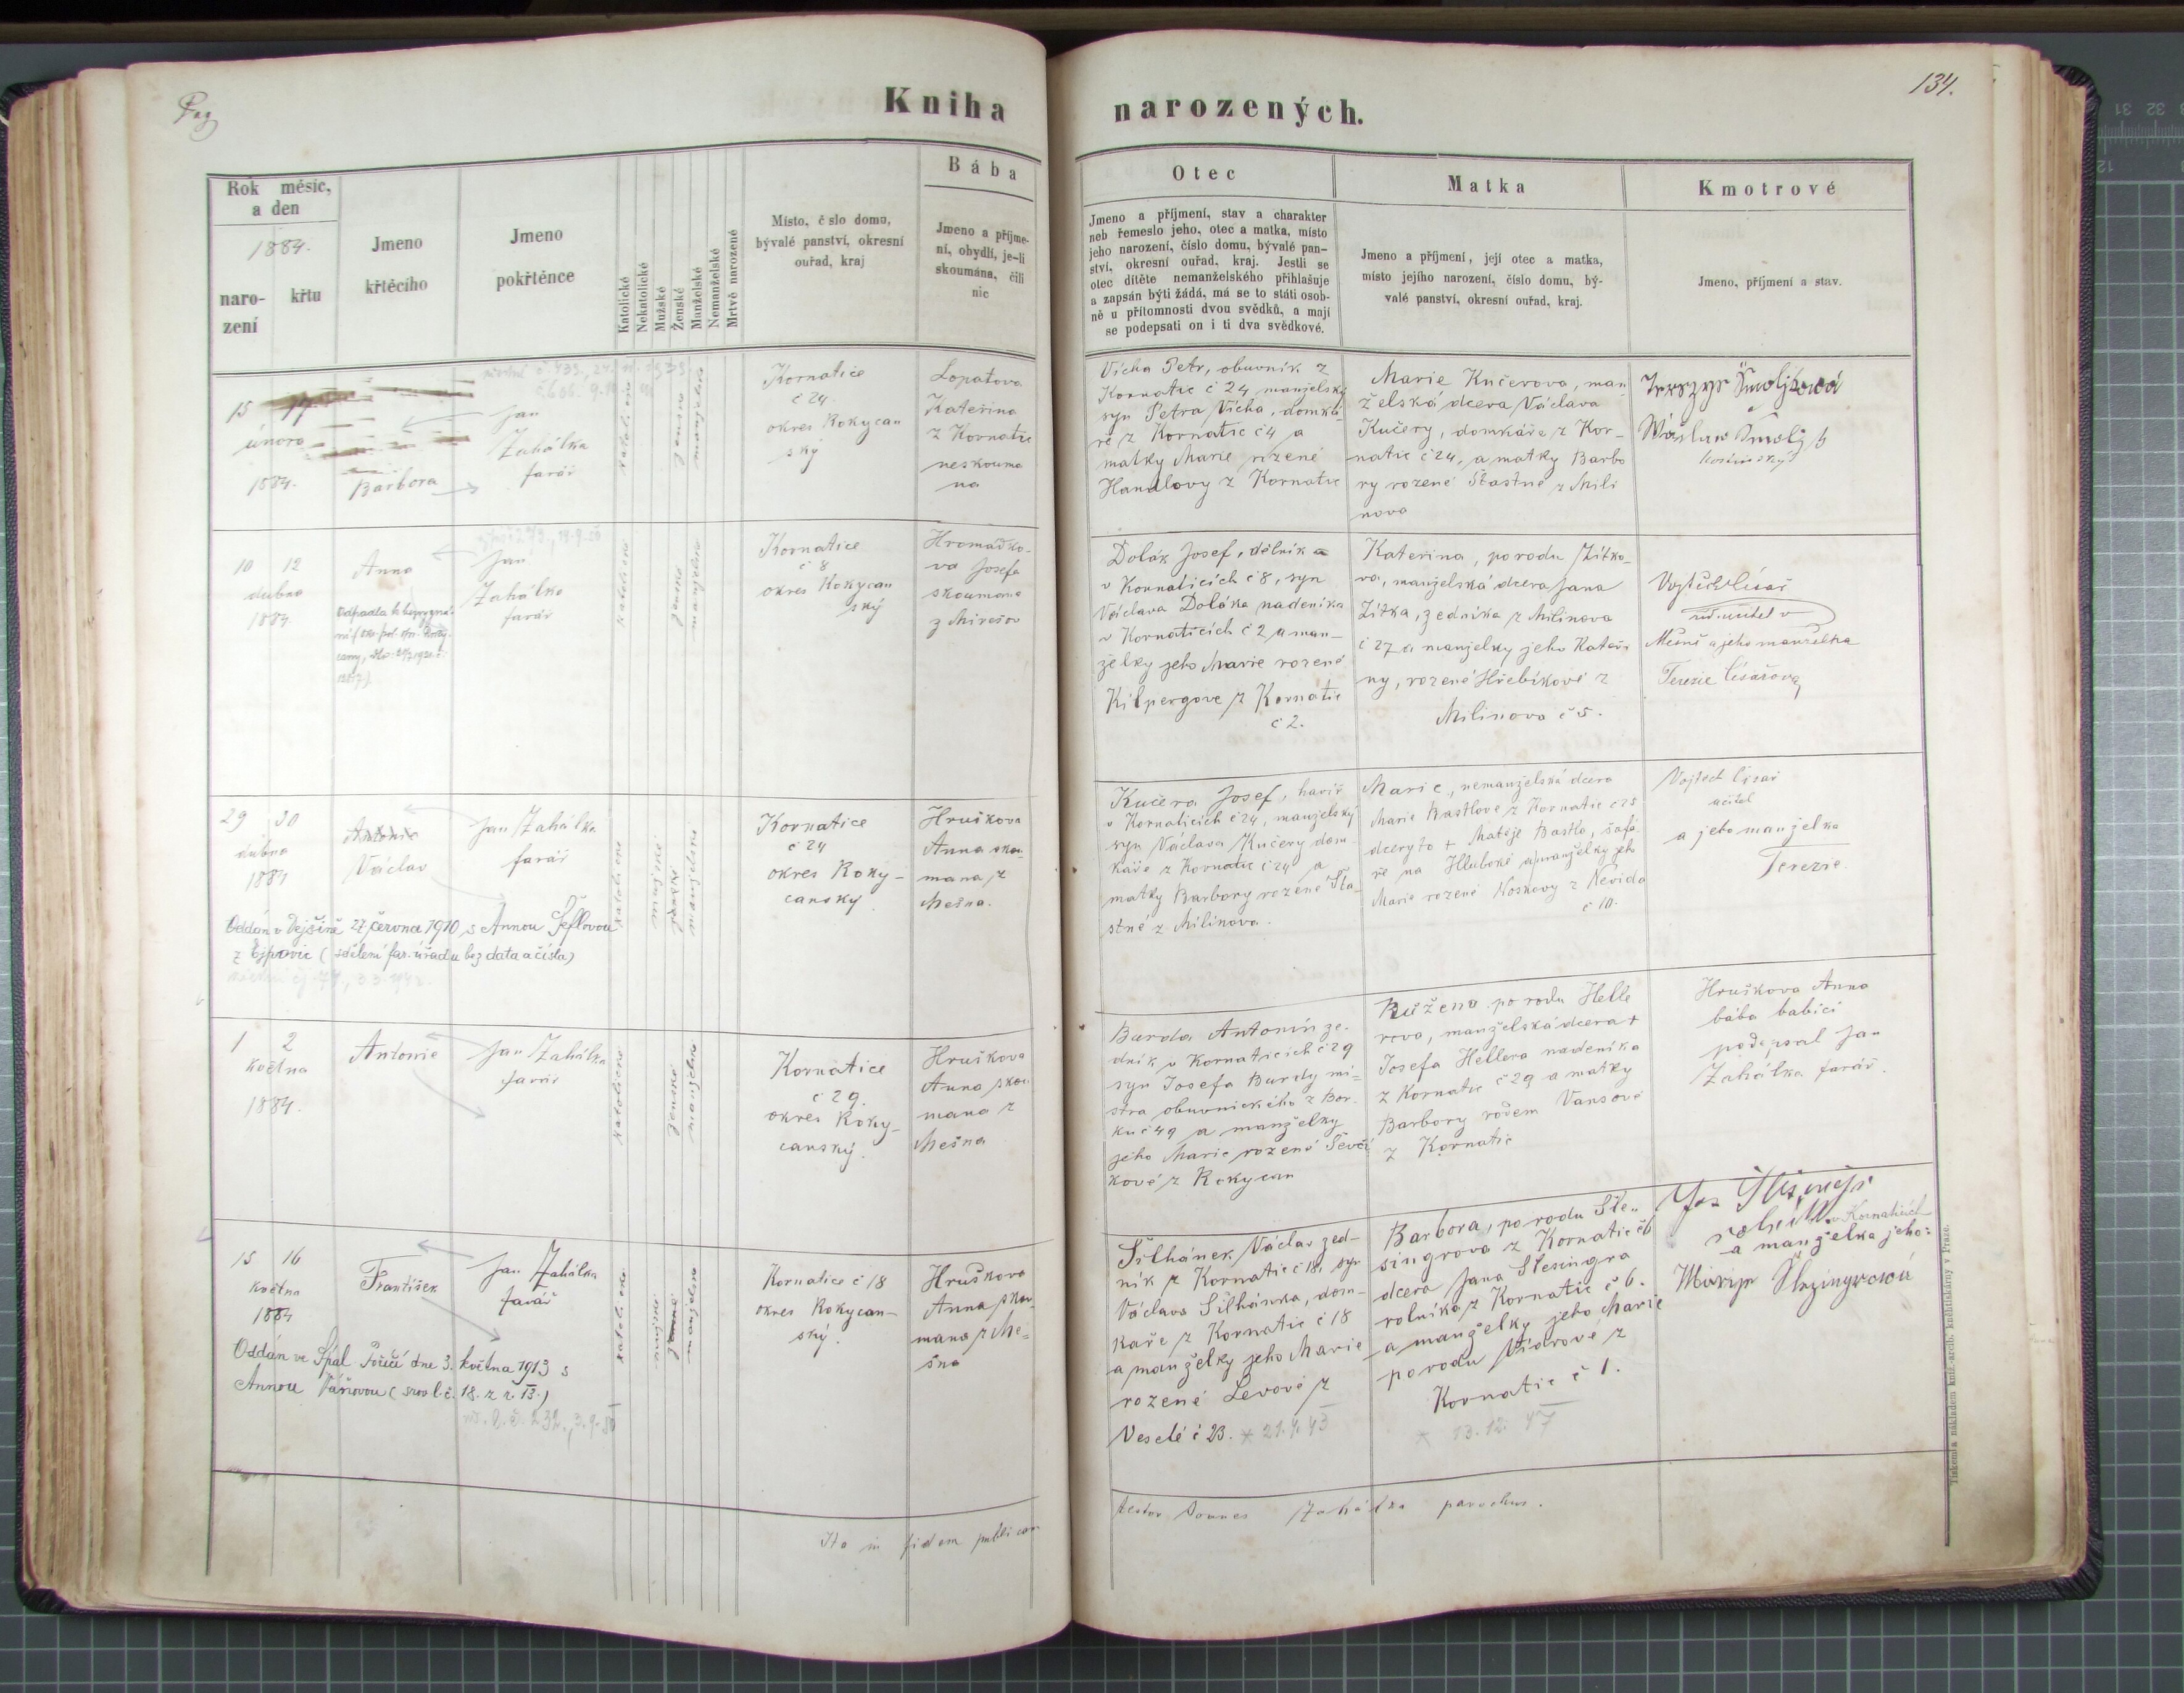 Pag
Kniha
narozených.
134.
Rok měsíc,
a den
1884.
naro-
zení
křtu
Jmeno
křtěcího
Jmeno
pokřtěnce
Katolické
Nekatolické
Mužské
Ženské
Manželské
Nemanželské
Mrtvě narozené
Místo, č slo domu,
bývalé panství, okresní
ouřad, kraj
Bába
Jmeno a příjme-
ní, obydlí, je-li
skoumána, čili
nic
Otec
Jmeno a příjmení, stav a charakter
neb řemeslo jeho, otec a matka, místo
jeho narození, číslo domu, bývalé pan-
ství, okresní ouřad, kraj. Jestli se
otec dítěte nemanželského přihlašuje
a zapsán býti žádá, má se to státi osob-
ně u přítomnosti dvou svědků, a mají
se podepsati on i ti dva svědkové.
Matka
Jmeno a příjmení, její otec a matka,
místo jejího narození, číslo domu, bý-
valé panství, okresní ouřad, kraj.
Kmotrové
Jmeno, příjmení a stav.
15 17
února
1884.
Barbora
Jan
Zahálka
farář
katolické
ženské
manželské
Kornatice
č 24
okres Rokycan
ský
Lopatova
Kateřina
z Kornatic
neskouma
na
Vícha Petr, obuvník z
Kornatic č 24 manželský
syn Petra Vícha, domká
ře z Kornatic č 4 a
matky Marie rozené
Handlovy z Kornatic
Marie Kučerova, man
želská dcera Václava
Kučery, domkáře z Kor-
natic č 24, a matky Barbo
ry rozené Šťastné z Mili
nova
10 12
dubna
1884
Anna
Jan
Zahálka
farář
katolické
ženské
manželské
Kornatice
č 8
okres Rokycan
ský
Hromadko-
va Josefa
skoumana
z Mirešov
Dolák Josef, dělník
v Kornaticích č 8, syn
Václava Doláka nadeníka
v Kornaticích č 2 a man-
želky jeho Marie rozené
Kilpergove z Kornatic
č 2.
Kateřina, porodu Žítko-
va, manželská dcera Jana
Žítka, zedníka z Milinova
č 27 a manželky jeho Kateři
ny, rozené Hřebíkové z
Milinova č 5.
Vojtěch Císař
učitel v
Mešně a jeho manželka
Terezie Císařová
29 30
dubna
1884
Antonie
Václav
Jan Zahálka
farář
katolické
mužské
ženské
manželské
Oddán v Dejšině 27 června 1910 s Annou Šeflovou
z Ejpovic (sdělení far. úřadu bez data a čísla)
Kornatice
č 24
okres Roky-
cansky
Hruškova
Anna skou
mana z
Mešna.
Kučera Josef, havíř
v Kornaticích č 24, manželský
syn Václava Kučery dom-
káře z Kornatic č 24 a
matky Barbory rozené Šťa-
stné z Milinova.
Marie, nemanželská dcera
Marie Bastlove z Kornatic č 25
dceryto + Matěje Bastla, šafá
ře na Hluboké a manželky jeho
Marie rozené Noskovy z Nevida
č 10.
Vojtech Cisař
učitel
a jeho manželka
Terezie.
1 2
května
1884.
Antonie
Jan Zahálka
farář
katolické
ženské
manželské
Kornatice
č 29.
okres Roky-
canský.
Hruškova
Anna skou
mana z
Mešna
Burda Antonín ze-
dník v Kornaticích č 29
syn Josefa Burdy mi-
stra obuvnického z Bor-
ku č 49 a manželky
jeho Marie rozené Ševčí
kové z Rokycan
Růžena porodu Helle
rova, manželská dcera +
Josefa Hellera nadeníka
z Kornatic č 29 a matky
Barbory rodem Vansové
z Kornatic
Hruškova Anna
bába babící
podepsal Jan
Zahálka farář.
15 16
května
1884
František
Jan Zahálka
farář
katolické
mužské
ženské
manželské
Oddán ve Spál. Poříčí dne 3. května 1913 s
Annou Váňovou (srov. l. č. 18. z r. 13.)
Kornatice č 18
okres Rokycan-
ský.
Hruškova
Anna skou
mana z Me-
šna
Šilhánek Václav zed-
ník z Kornatic č 18, syn
Václava Šilhánka, dom-
kaře z Kornatic č 18
a manželky jeho Marie
rozené Levové z
Veselé č 23. * 21.4.43
Barbora, porodu Šle-
singrova z Kornatic č 6
dcera Jana Šlesingra
rolníka z Kornatic č 6.
a manželky jeho Marie
porodu Vidrové z
Kornatic č 1.
* 13.12. 47
v Kornaticích
a manželka jeho:
Ita in fidem publicam
testor Joannes Zahálka parochus.
Tiskem a nákladem kníž.-arcib. knihtiskárny v Praze.